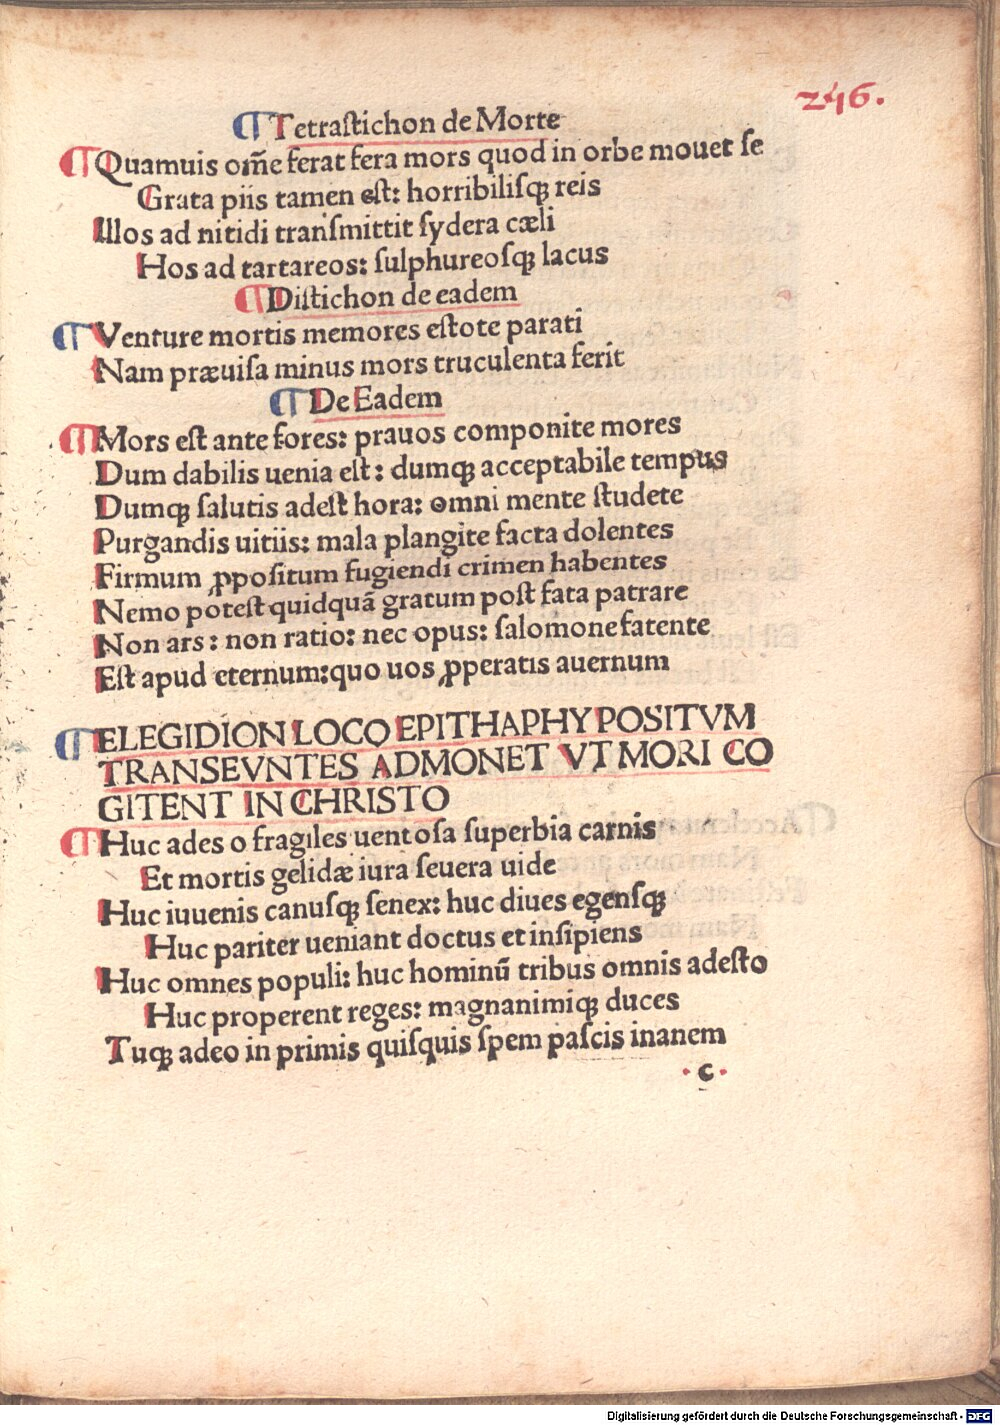 246.
¶Tetraſtichon de Morte
¶Quamuis om̄e ferat fera mors quod in orbe mouet ſe
Grata piis tamen eſt: horribiliſqꝫ reis
Illos ad nitidi tranſmittit ſydera cæli
Hos ad tartareos: ſulphureoſqꝫ lacus
¶Diſtichon de eadem
¶Venture mortis memores eſtote parati
Nam præuiſa minus mors truculenta ferit
¶De Eadem
¶Mors eſt ante fores: prauos componite mores
Dum dabilis uenia eſt: dumqꝫ acceptabile tempus
Dumqꝫ ſalutis adeſt hora: omni mente ſtudete
Purgandis uitiis: mala plangite facta dolentes
Firmum ꝓpoſitum fugiendi crimen habentes
Nemo poteſt quidquā gratum poſt fata patrare
Non ars: non ratio: nec opus: ſalomone fatente
Eſt apud eternum: quo uos ꝓperatis auernum
¶ELEGIDION LOCO EPITHAPHY POSITVM
TRANSEVNTES ADMONET VT MORI CO
GITENT IN CHRISTO
¶Huc ades o fragiles uentoſa ſuperbia carnis
Et mortis gelidæ iura ſeuera uide
Huc iuuenis canuſqꝫ ſenex: huc diues egenſqꝫ
Huc pariter ueniant doctus et inſipiens
Huc omnes populi: huc hominū tribus omnis adeſto
Huc properent reges: magnanimiqꝫ duces
Tuqꝫ adeo in primis quiſquis ſpem paſcis inanem
·c·
Digitalisierung gefördert durch die Deutsche Forschungsgemeinschaft - DFG